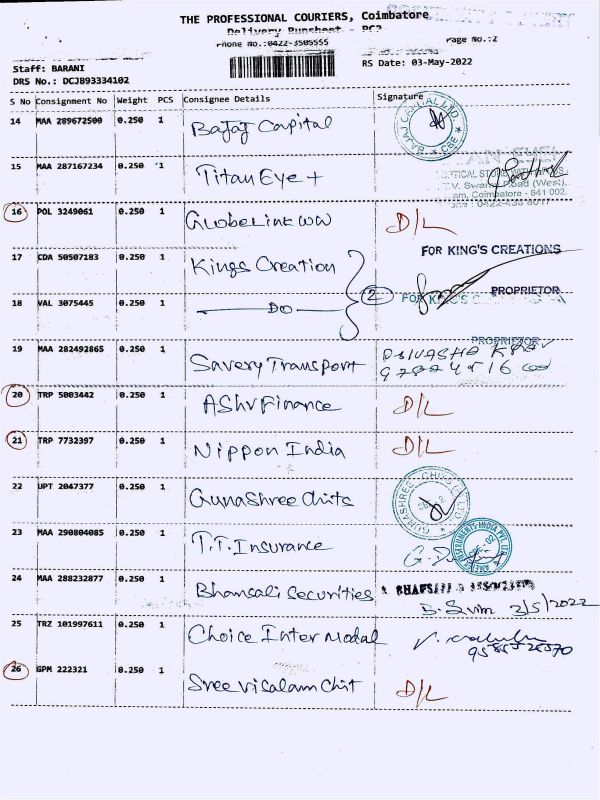 THE PROFESSIONAL COURIERS, Coimbatore
Delivery Runsheet - PC2
Phone No.:0422-3505555
Page No.:2
Staff: BARANI
RS Date: 03-May-2022
DRS No.: DCJB93334102
S No Consignment No Weight PCS Consignee Details Signature
14 MAA 289672500 0.250 1 Bajaj Capital
BAJAJ CAPITAL LTD CBE
15 MAA 287167234 0.250 1 Titan Eye +
T.V. Swamy Road (West),
Coimbatore - 641 002.
16 POL 3249061 0.250 1 GlobeLink WW D/L
17 CDA 50507183 0.250 1 Kings Creation
FOR KING'S CREATIONS
PROPRIETOR
18 VAL 3075445 0.250 1 DO 2
FOR KING'S
PROPRIETOR
19 MAA 282492865 0.250 1 Savery Transport
20 TRP 5003442 0.250 1 Ashv Finance D/L
21 TRP 7732397 0.250 1 Nippon India D/L
22 UPT 2047377 0.250 1 Gunashree Chits
23 MAA 290804085 0.250 1 T.T. Insurance
24 MAA 288232877 0.250 1 Bhansali Securities
3/5/2022
25 TRZ 101997611 0.250 1 Choice Inter Modal
26 GPM 222321 0.250 1 Sree Visalam Chit D/L